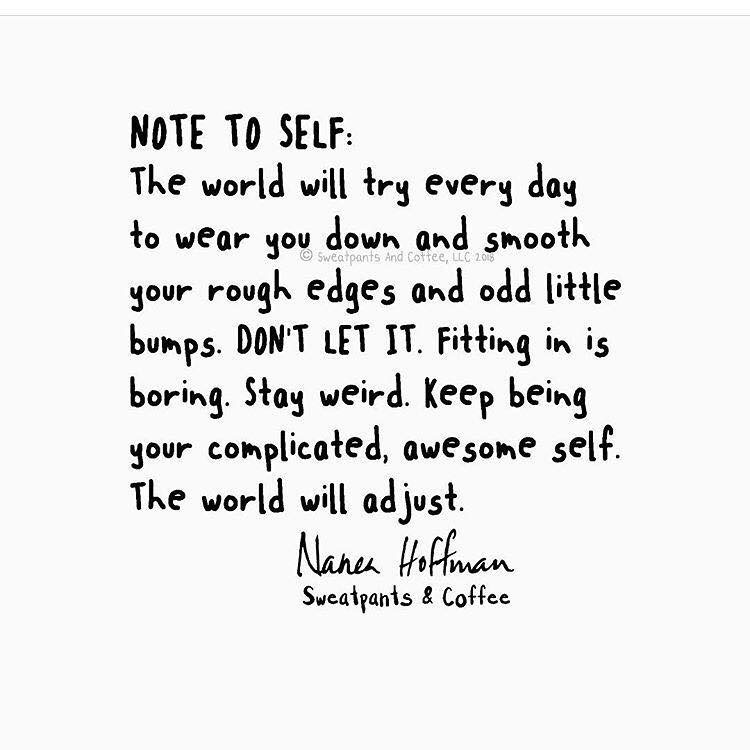 NOTE TO SELF:
The world will try every day
to wear you down and smooth
© Sweatpants And Coffee, LLC 2018
your rough edges and odd little
bumps. DON'T LET IT. Fitting in is
boring. Stay weird. Keep being
your complicated, awesome self.
The world will adjust.
Nanea Hoffman
Sweatpants & Coffee